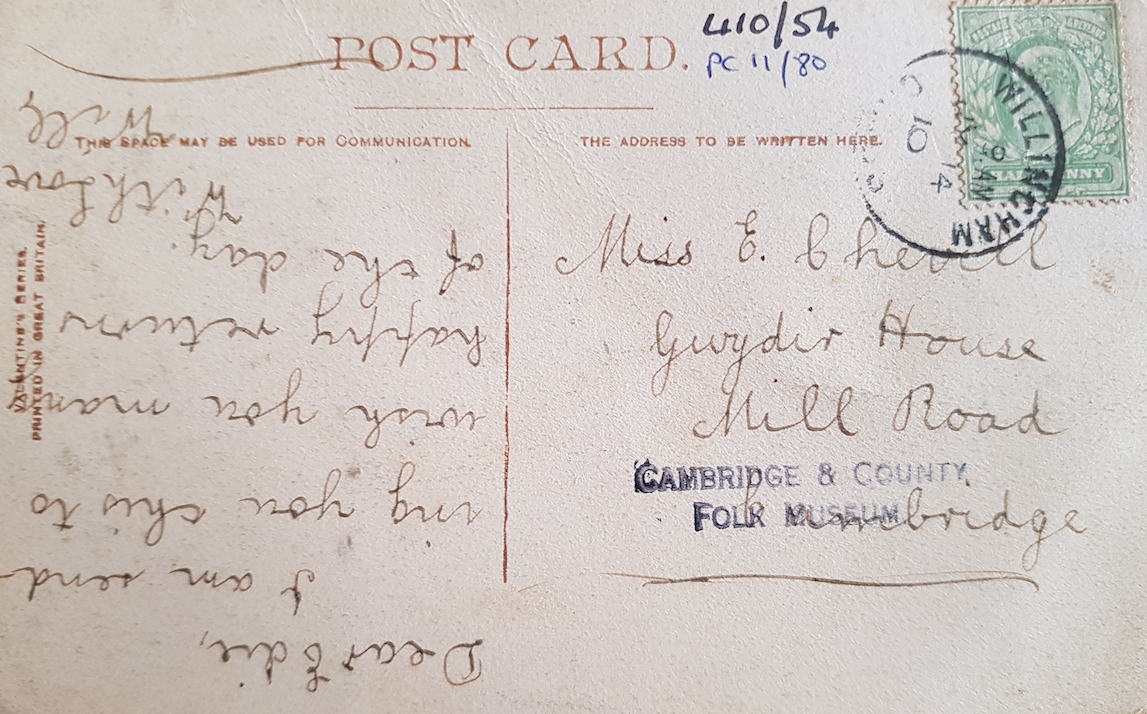 410/54
PC 11/80
POST CARD.
THIS SPACE MAY BE USED FOR COMMUNICATION.
THE ADDRESS TO BE WRITTEN HERE.
WILLINGHAM
10
14
HALFPENNY
Miss E. Chevell
Gwydir House
Mill Road
Cambridge
CAMBRIDGE & COUNTY
FOLK MUSEUM
VALENTINE'S SERIES.
PRINTED IN GREAT BRITAIN.
Dear Edie,
I am send
ing you this to
wish you many
happy returns
of the day.
With Love
Will